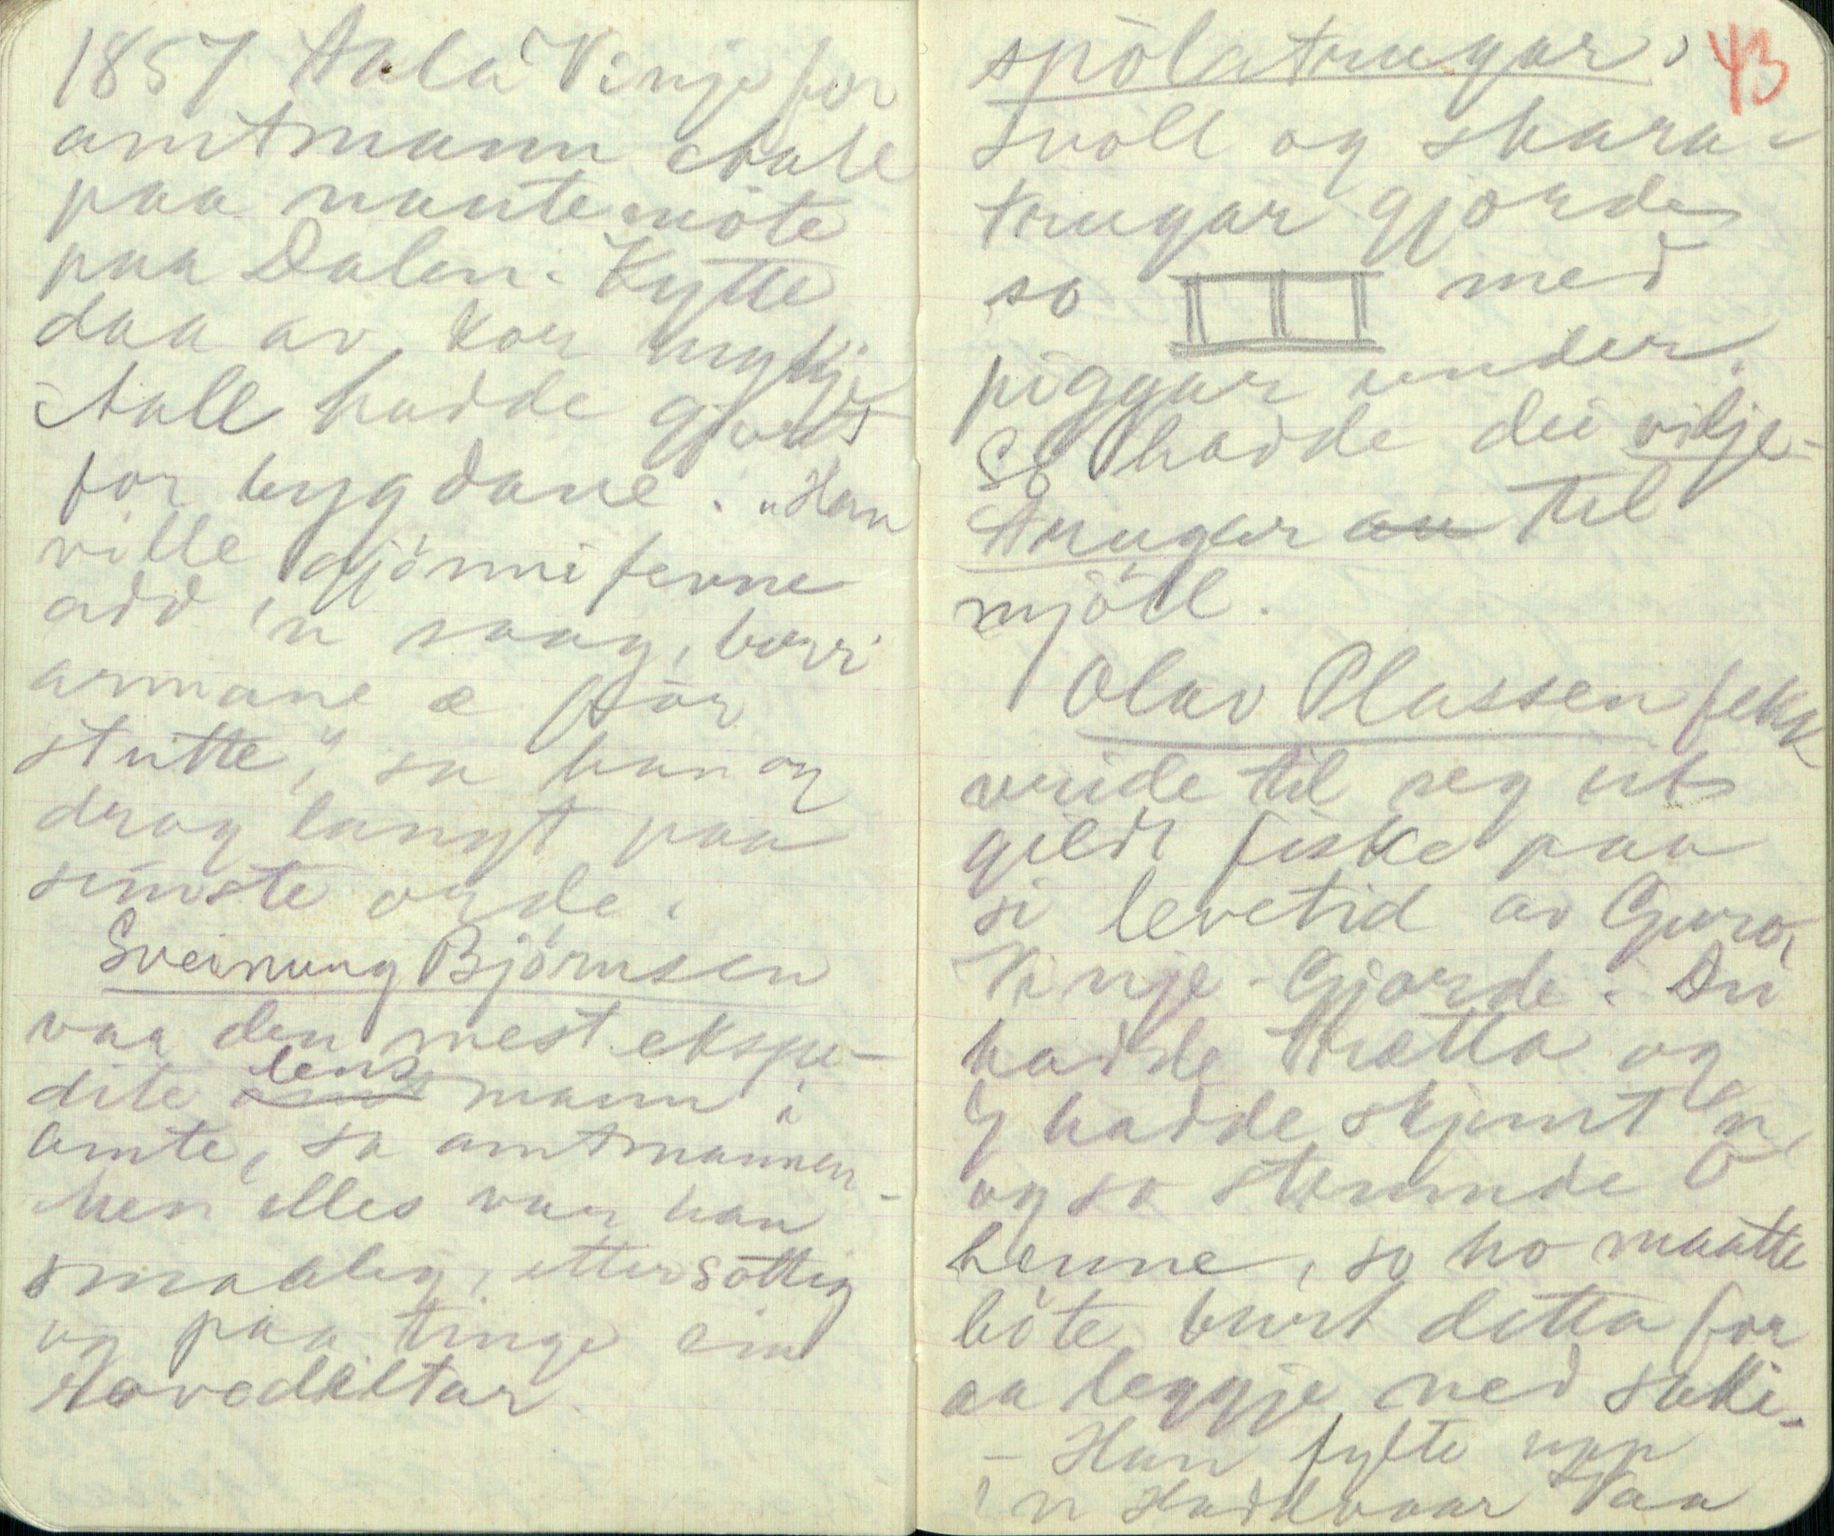 1857 tala Vinje for
amtmann Aall
paa møte
paa Dalen. Kytte
daa av kor mykje
Aall hadde gjort
for bygdane. "Han
ville gjönni femne
add 'n saag, berri
armane æ för
stutte," sa han og
drog langt paa
simste orde.
Sveinung Björnsen
vaa den mest ekspe-
dite lens mann i
amte, sa amtmannen -
Men elles var han
smaaleg, ettersöttig
og paa tinge ein
spölatrugar,
43
svoll og skara-
trugar gjorde
so med
piggar under.
So hadde dei vilje-
trugar au til
mjöll.
Olav Plassen fekk
vride til seg eit
gildt fiske paa
si levetid av Guro,
Vinje-Gjorde. Dei
hadde trætta og
G hadde skjemt 'en,
og so stemnde O
henne, so ho maatte
böte burt detta for
aa leggje ned saki.
- Han fyfte upp
'n Hadvaar Vaa